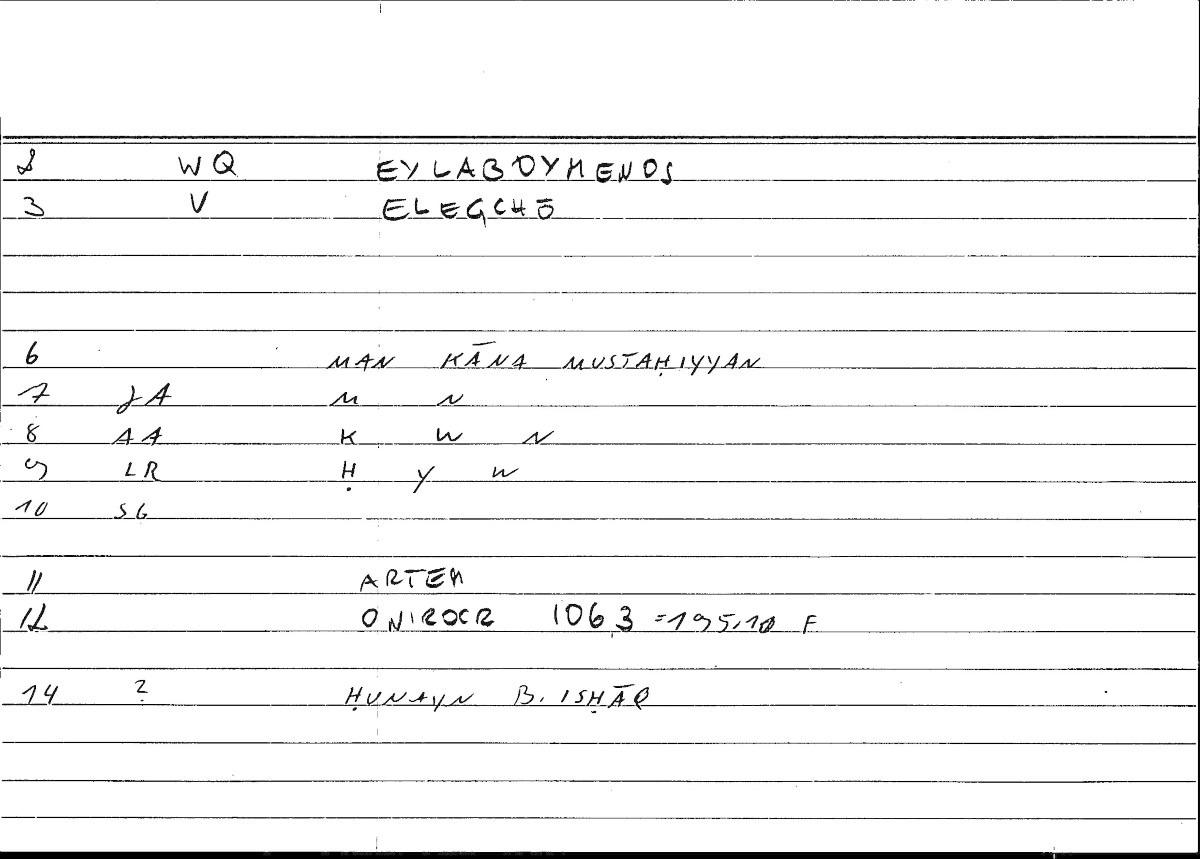 2 WQ EYLABOYMENOS
3 V ELEGCHŌ
6 MAN KĀNA MUSTAḤIYYAN
7 JA M N
8 AA K W N
9 LR Ḥ Y W
10 SG
11 ARTEM
12 ONIROCR 106,3 =195,10 F
14 ? ḤUNAYN B. ISḤĀQ